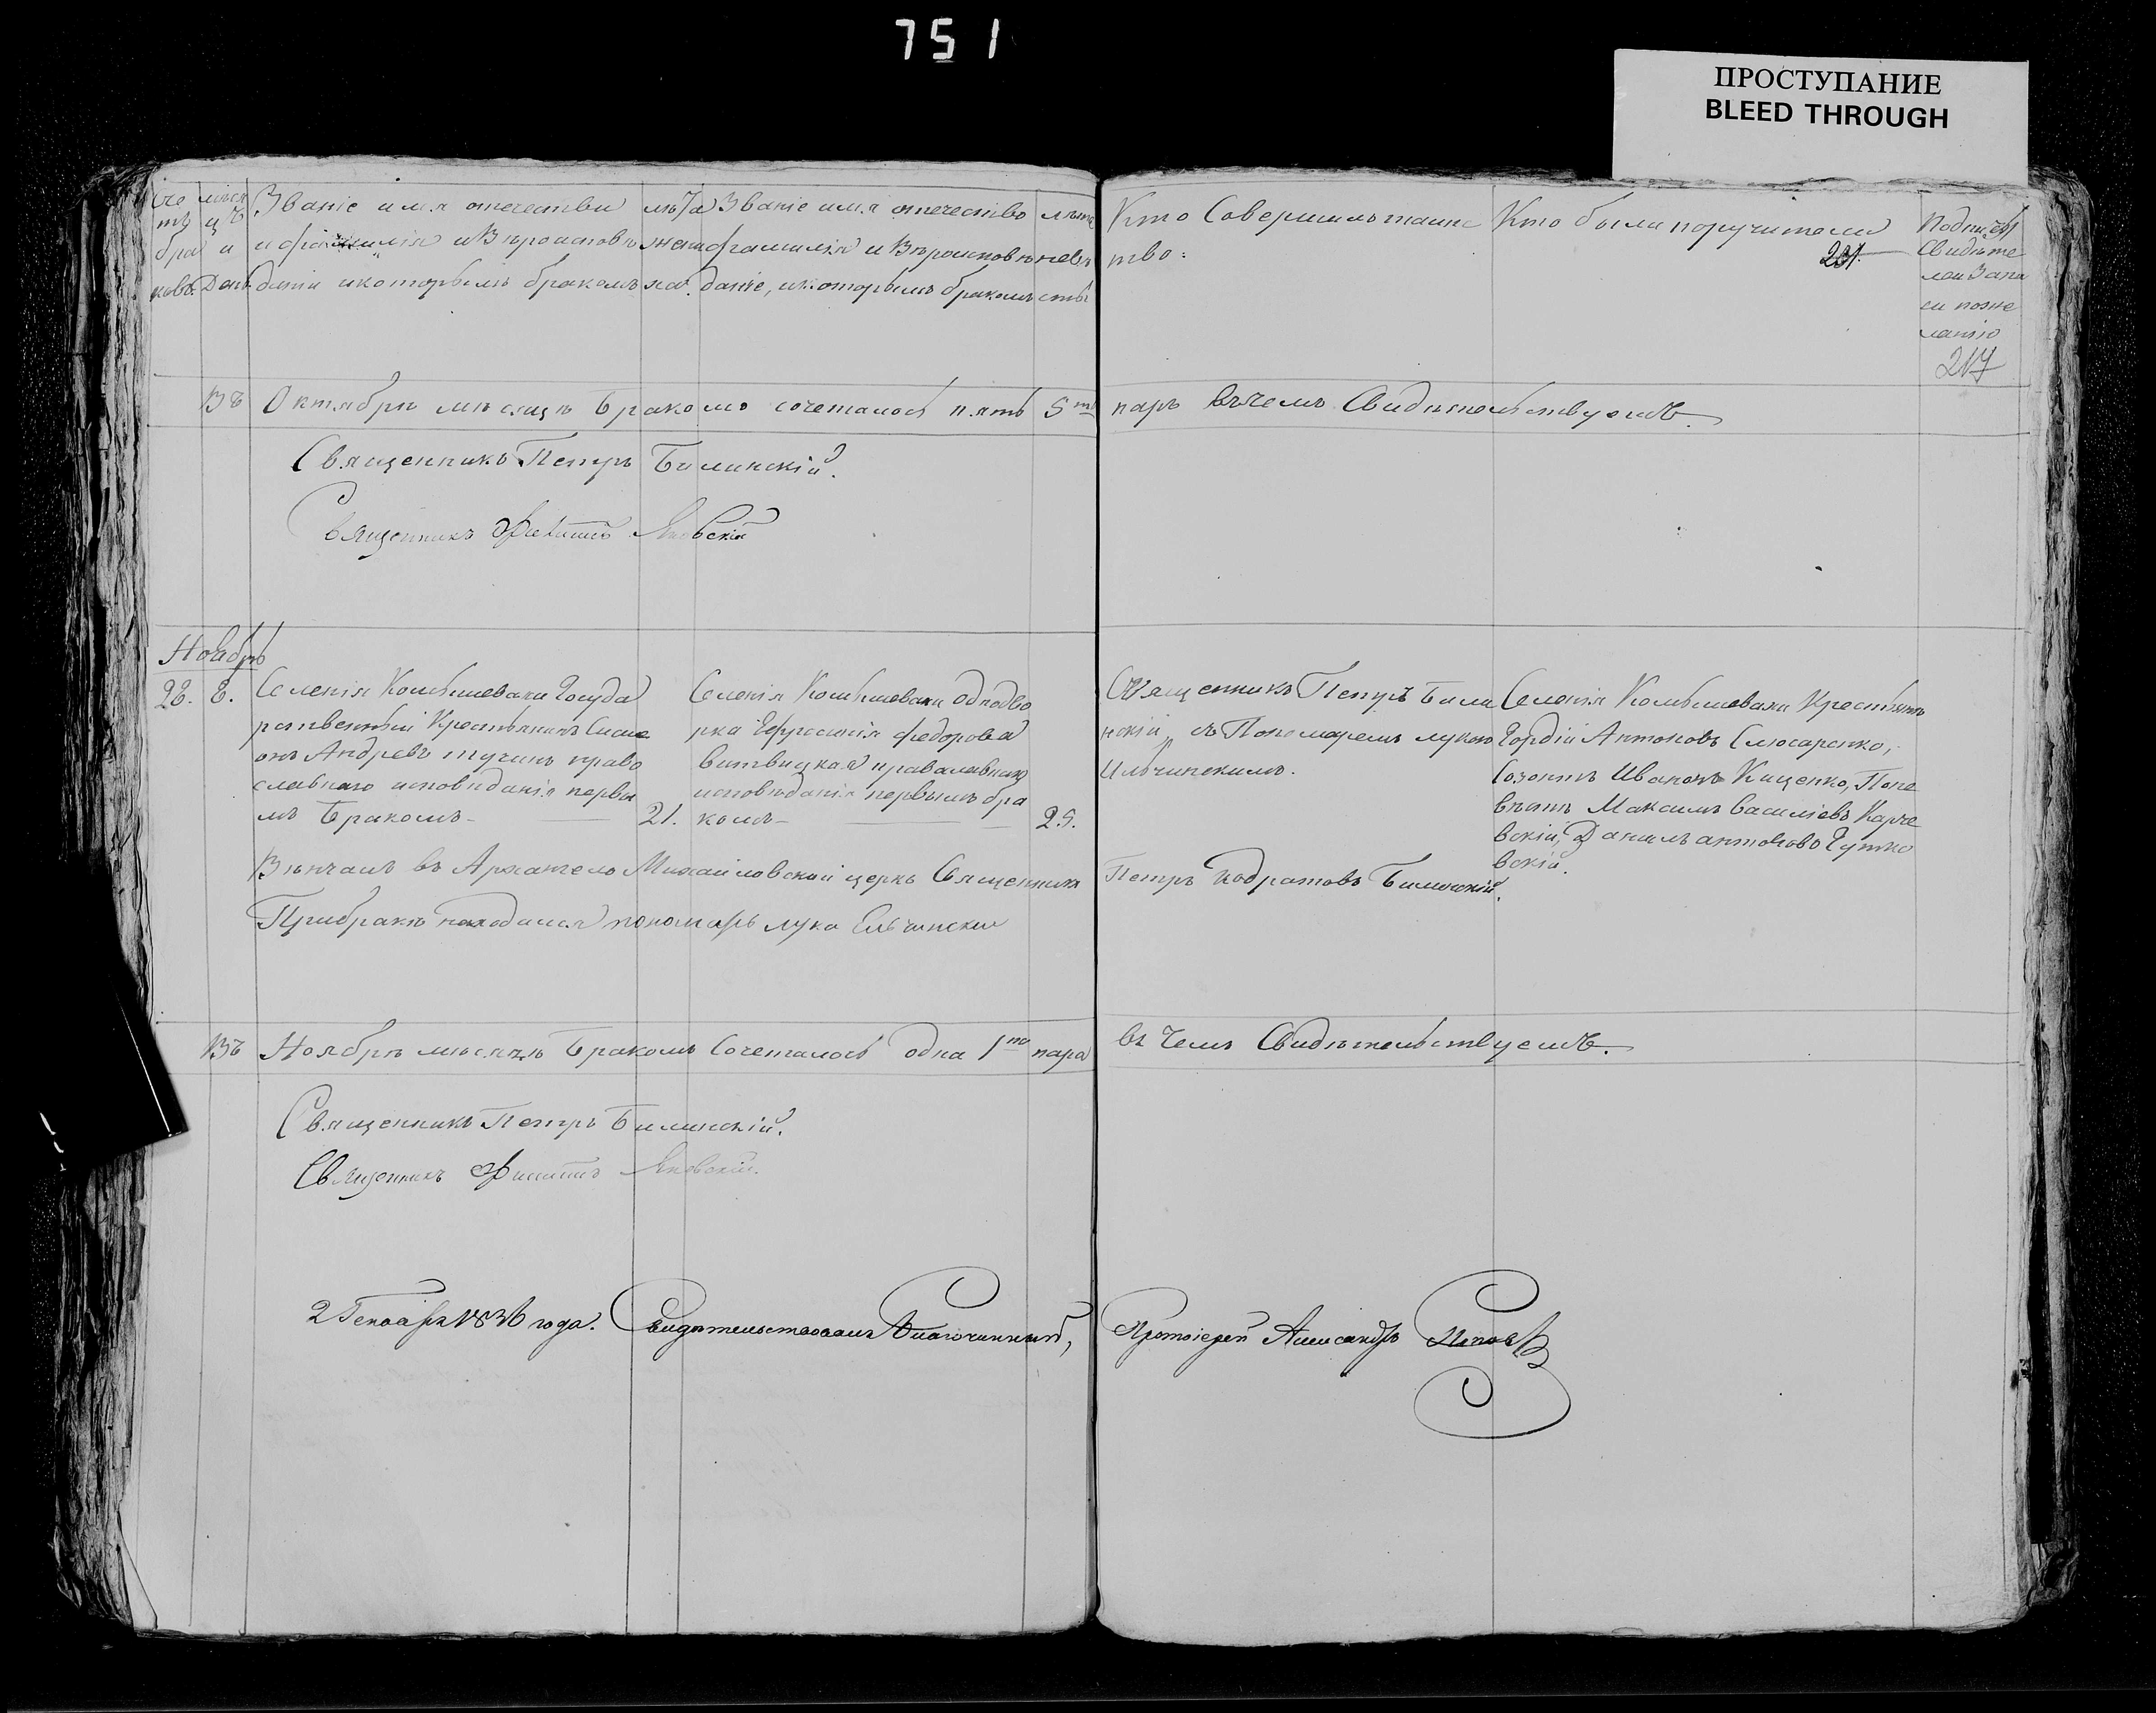 751
ПРОСТУПАНИЕ
BLEED THROUGH
Сче мѣся Званіе имя отечество лѣта Званіе имя отечество лѣта
тъ цъ и фамилія и Вѣроисповѣ жениха фамилія и Вѣроисповѣ невѣ
бра и
ковъ День даніи и которымъ бракомъ даніе, и которымъ бракомъ сты
Кто Совершилъ таинс
тво:
Кто были поручители
201.
Подпись
Свидѣте
лей Запи
си по же
ланію
217
Въ Октябрѣ мѣсяцѣ Бракомъ сочеталось пять 5 паръ въ чемъ Свидѣтельствуемъ.
Священникъ Петръ Билинскій.
Священникъ Яновскій
Ноябрь
28. 8.
Селенія Комышевахи Госуда
рственный Крестьянинъ Симе
онъ Андреевъ тучинъ право
славнаго исповѣданія первы
мъ Бракомъ 21.
Селенія Комышевахи однодво
рка Ефросинія федорова
витвицкая православнаго
исповѣданія первымъ бра
комъ 25.
Священникъ Петръ Били
нскій съ Пономаремъ лукою
Ильчинскимъ.
Селенія Комышевахи Крестьяне
Гордій Антоновъ Слюсаренко,
Созонтъ Ивановъ Кищенко,
Максимъ Василіевъ Карче
вскій, Данилъ антоновъ Гутко
вскій.
Вѣнчалъ въ Архангело Михайловской церкв Священникъ Петръ Кодратовъ Билинскій.
При бракѣ находился пономарь лука Ельчински
Въ Ноябрѣ мѣсяцѣ Бракомъ Сочеталось одна 1 пара въ чемъ Свидѣтельствуемъ.
Священникъ Петръ Билинскій.
Священникъ Яновскій.
2 Генваря 1836 года. Свидѣтельствовалъ Благочинный, Протоіерей Александръ Поповъ